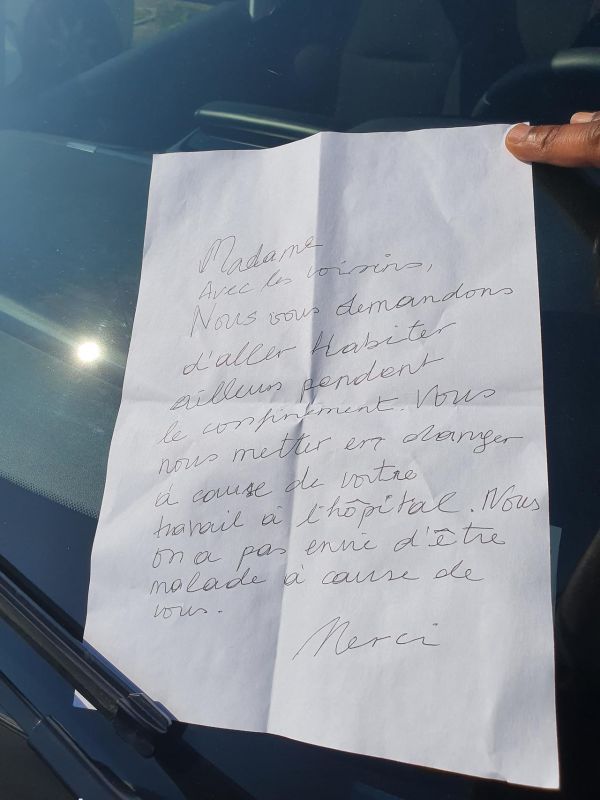 Madame
Avec les voisins,
Nous vous demandons
d'aller Habiter
ailleurs pendent
le confinément. Vous
nous metter en danger
à cause de votre
travail à l'hôpital. Nous
on a pas envie d'être
malade à cause de
vous.
Merci